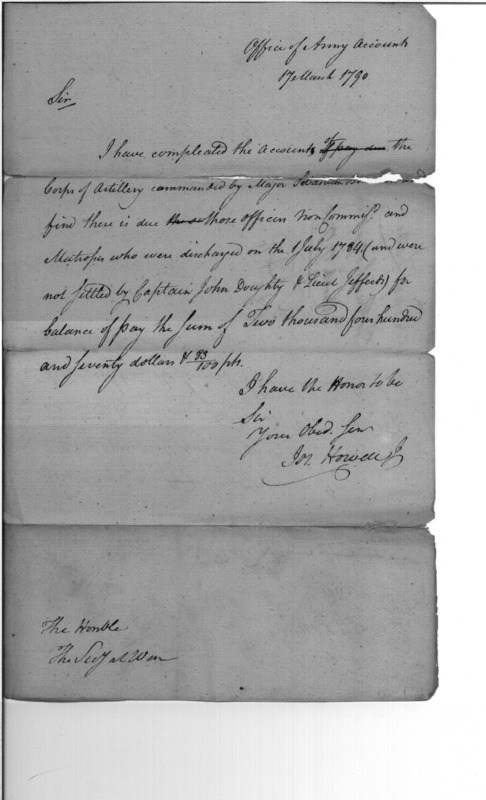 Office of Army Accounts
17 March 1790
Sir
I have compleated the Accounts of pay due the
Corps of Artillery commanded by Major and
find there is due those officers non Commisd. and
Matrosses who were discharged on the 1 July 1784 (and were
not settled by Captain John Doughty & Lieut Jeffers) for
balance of pay the sum of Two thousand four hundred
and seventy dollars & 83/100 pts.
I have the Honor to be
Sir
Your Obed. Serv
Jos. Howell Jr
The Honble
The Secy at War